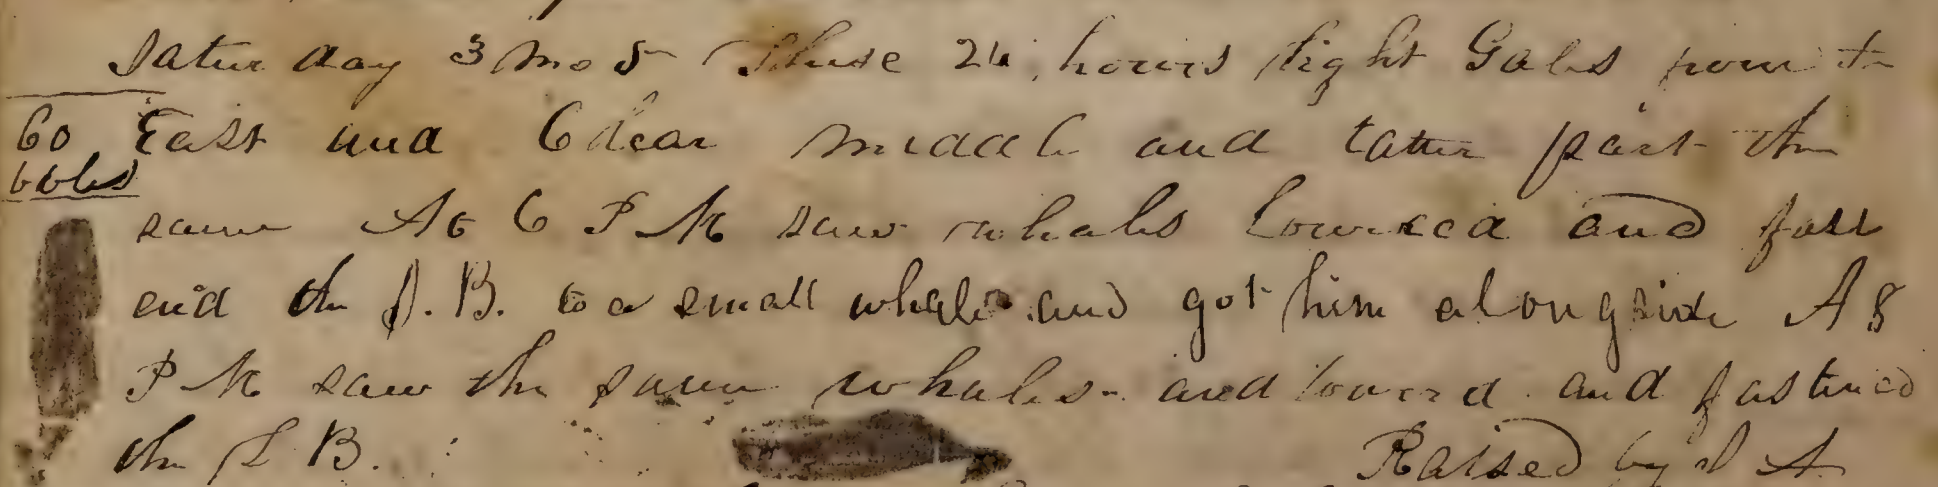 Saturday 3 mo 5 These 24 hours light Gales from the
60 East and Clear middle and latter part the
bbls
same At 6 P M saw whales Lowered and fast
end the J. B. to a small whale and got him alongside A 8
P M saw the same whales and lowerd and fastened
the L B. Raised by